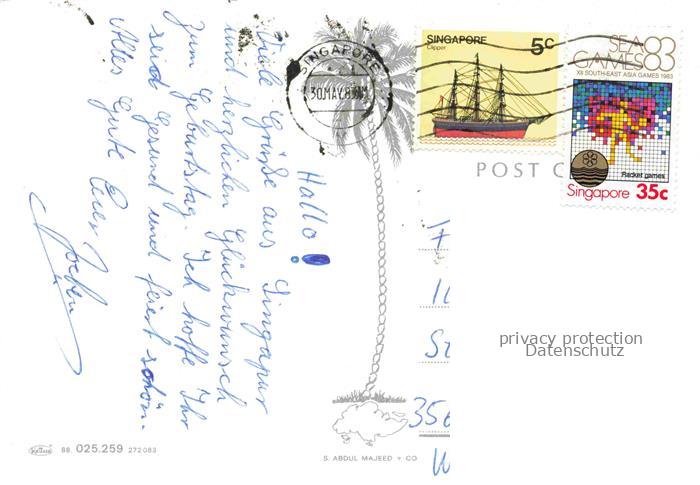 Hallo!
Viele Grüße aus Singapur
und herzlichen Glückwunsch
zum Geburtstag. Ich hoffe Ihr
seid gesund und feiert schön.
Alles Gute Euer
Jochen
SINGAPORE
30MAY8
SINGAPORE 5c
Clipper
SEA
GAMES 83
XII SOUTH-EAST ASIA GAMES 1983
Racket games
Singapore 35c
POST C
St
privacy protection
Datenschutz
88 025.259 272083
S. ABDUL MAJEED + CO